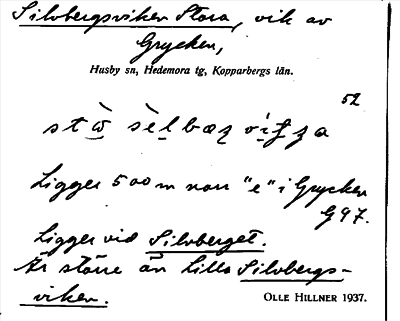 Silvbergsviken Stora, vik av
Grycken,
Husby sn, Hedemora tg, Kopparbergs län.
52
Ligger 500 m norr "e" i Grycken
G 97.
Ligger vid Silvberget.
Är större än Lilla Silvbergs-
viken.
OLLE HILLNER 1937.